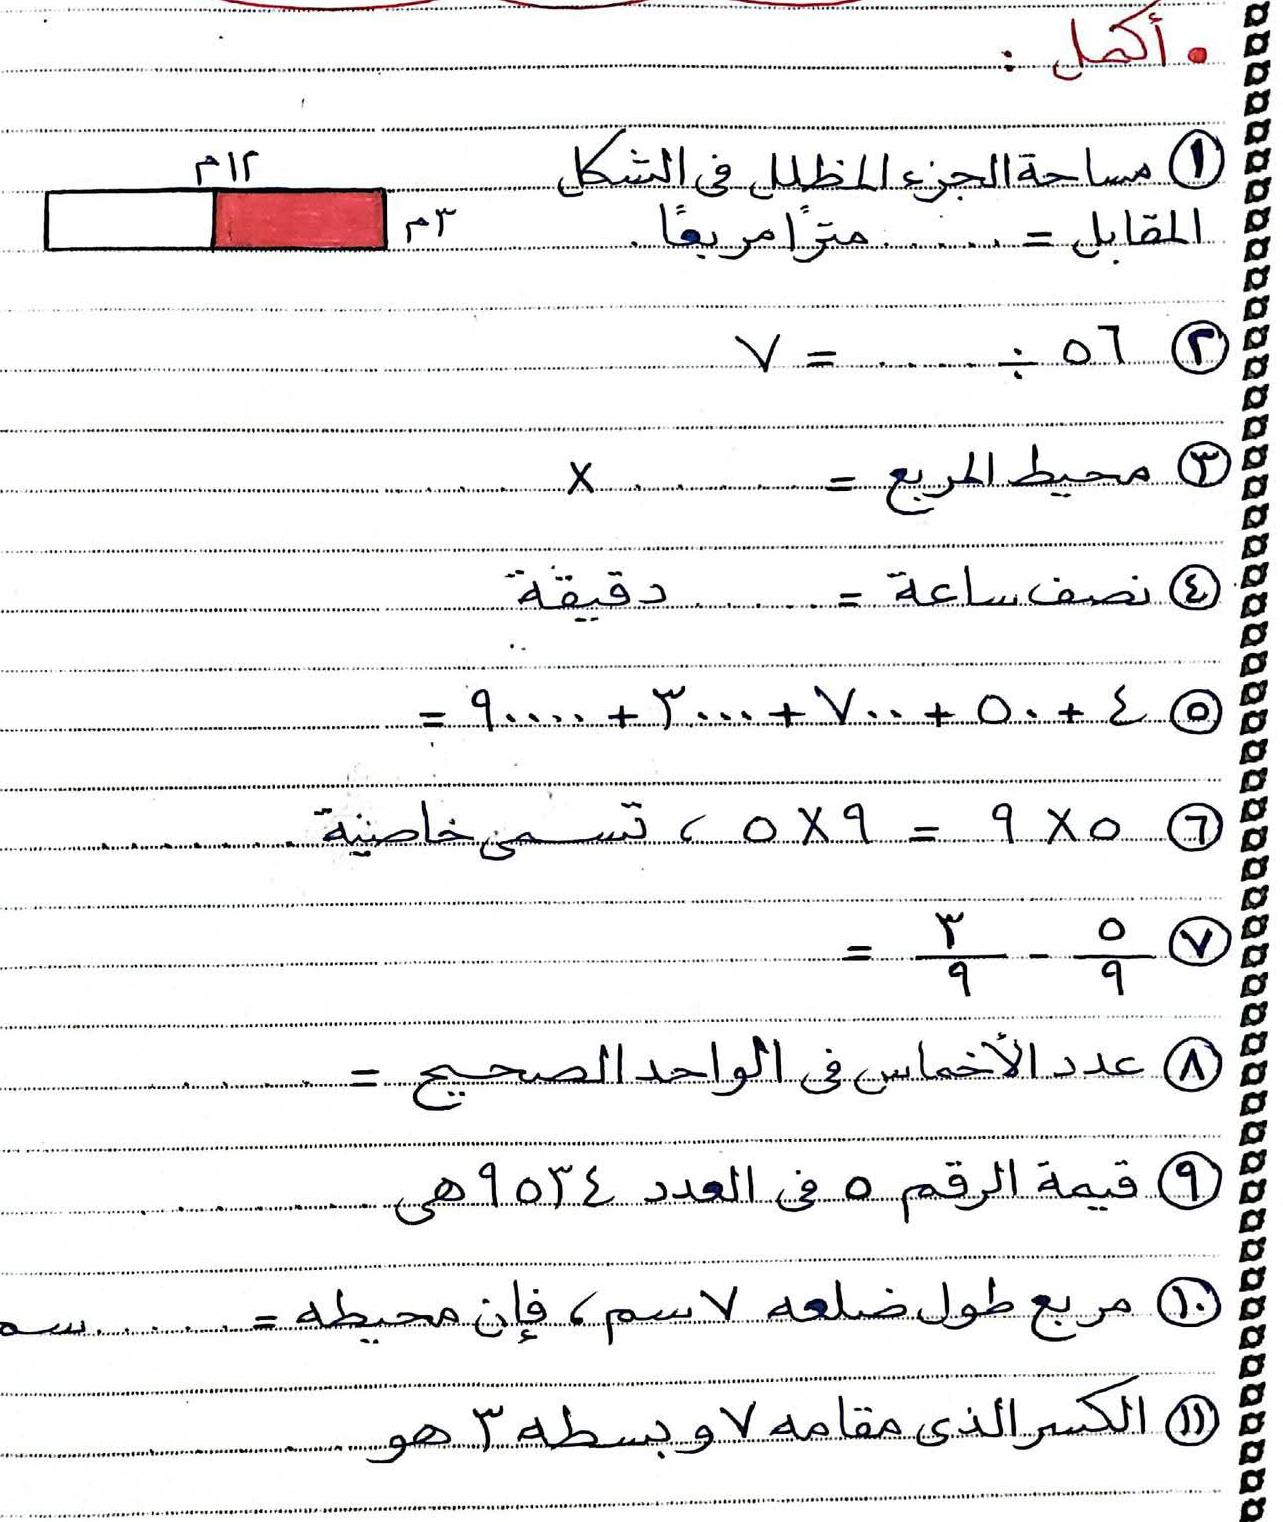 • أكمل :
١٢م
① مساحة الجزء المظلل فى الشكل
٣م
المقابل = ...... مترًا مربعًا .
② ٥٦ ÷ ...... = ٧
③ محيط المربع = ......... × .........
④ نصف ساعة = ....... دقيقة
⑤ ٤ + ٥٠ + ٧٠٠ + ٣٠٠٠ + ٩٠٠٠٠ =
⑥ ٥ × ٩ = ٩ × ٥ ، تسمى خاصية ...........
⑦ ٥/٩ - ٣/٩ =
⑧ عدد الأخماس فى الواحد الصحيح = .........
⑨ قيمة الرقم ٥ فى العدد ٩٥٣٤ هى .........
⑩ مربع طول ضلعه ٧ سم ، فإن محيطه = ....... سم
⑪ الكسر الذى مقامه ٧ و بسطه ٣ هو